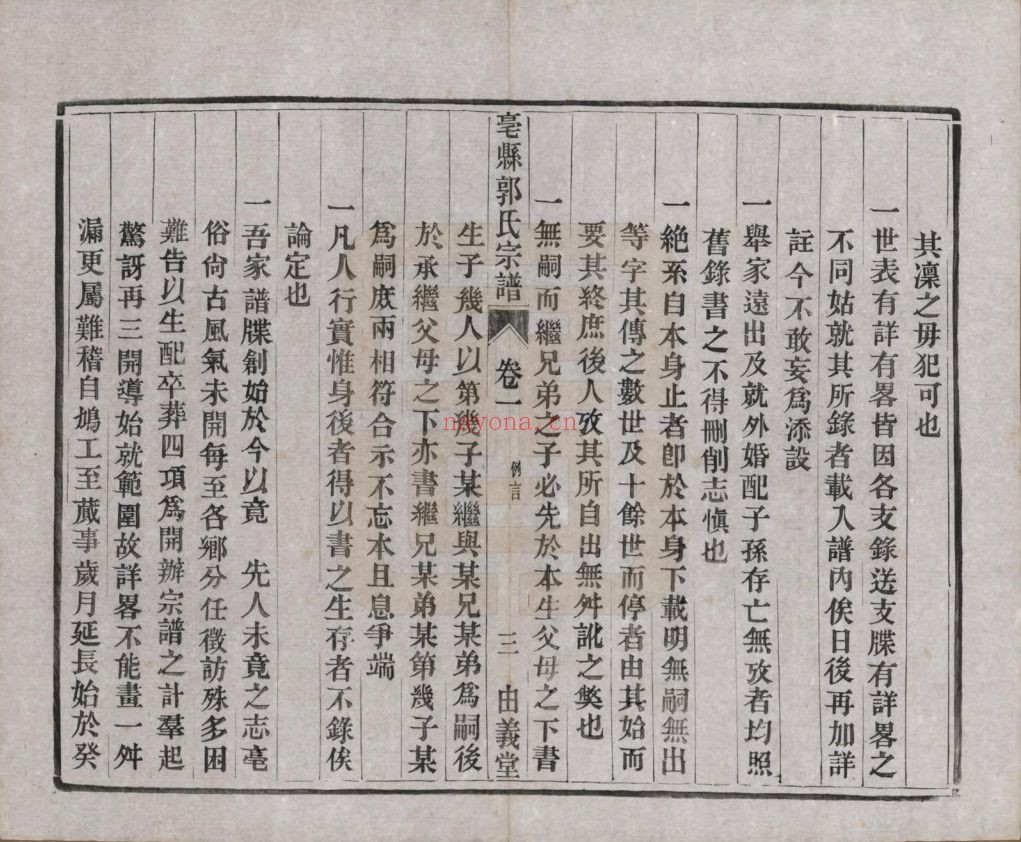 其凜之毋犯可也
一世表有詳有畧皆因各支錄送支牒有詳畧之
不同姑就其所錄者載入譜內俟日後再加詳
註今不敢妄爲添設
一舉家遠出及就外婚配子孫存亡無攷者均照
舊錄書之不得刪削志愼也
一絶系自本身止者卽於本身下載明無嗣無出
等字其傳之數世及十餘世而停者由其始而
要其終庶後人攷其所自出無舛訛之獘也
一無嗣而繼兄弟之子必先於本生父母之下書
生子幾人以第幾子某繼與某兄某弟爲嗣後
於承繼父母之下亦書繼兄某弟某第幾子某
爲嗣庶兩相符合示不忘本且息爭端
一凡人行實惟身後者得以書之生存者不錄俟
論定也
一吾家譜牒創始於今以竟　先人未竟之志亳
俗尙古風氣未開每至各鄉分任徵訪殊多困
難告以生配卒葬四項爲開辦宗譜之計羣起
驚訝再三開導始就範圍故詳畧不能畫一舛
漏更屬難稽自鳩工至蕆事歲月延長始於癸
亳縣郭氏宗譜
卷一
例言
三
由義堂
nayona.cn